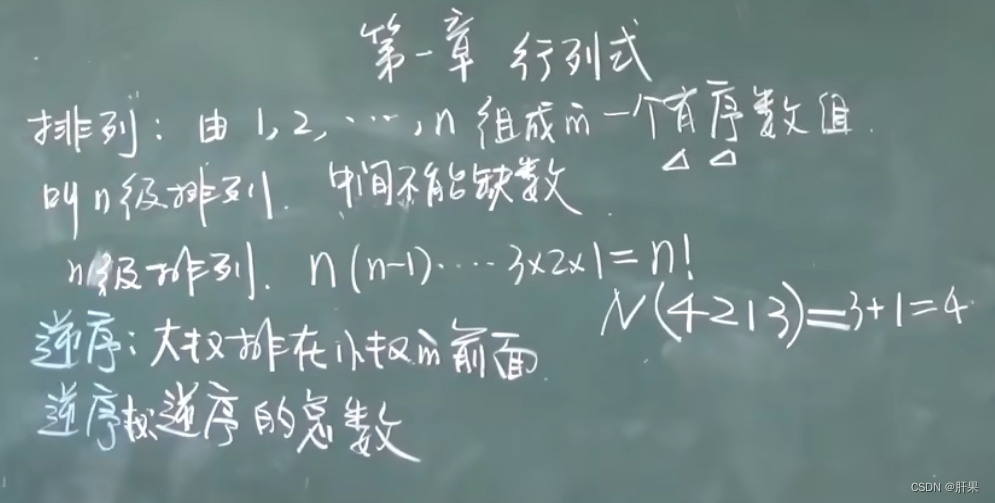 第一章 行列式
排列：由 1,2,…,n 组成的一个有序数组.
叫n级排列. 中间不能缺数.
n级排列. n(n-1)····3×2×1=n!
N(4213)=3+1=4
逆序：大数排在小数的前面.
逆序数：逆序的总数
CSDN @肝果